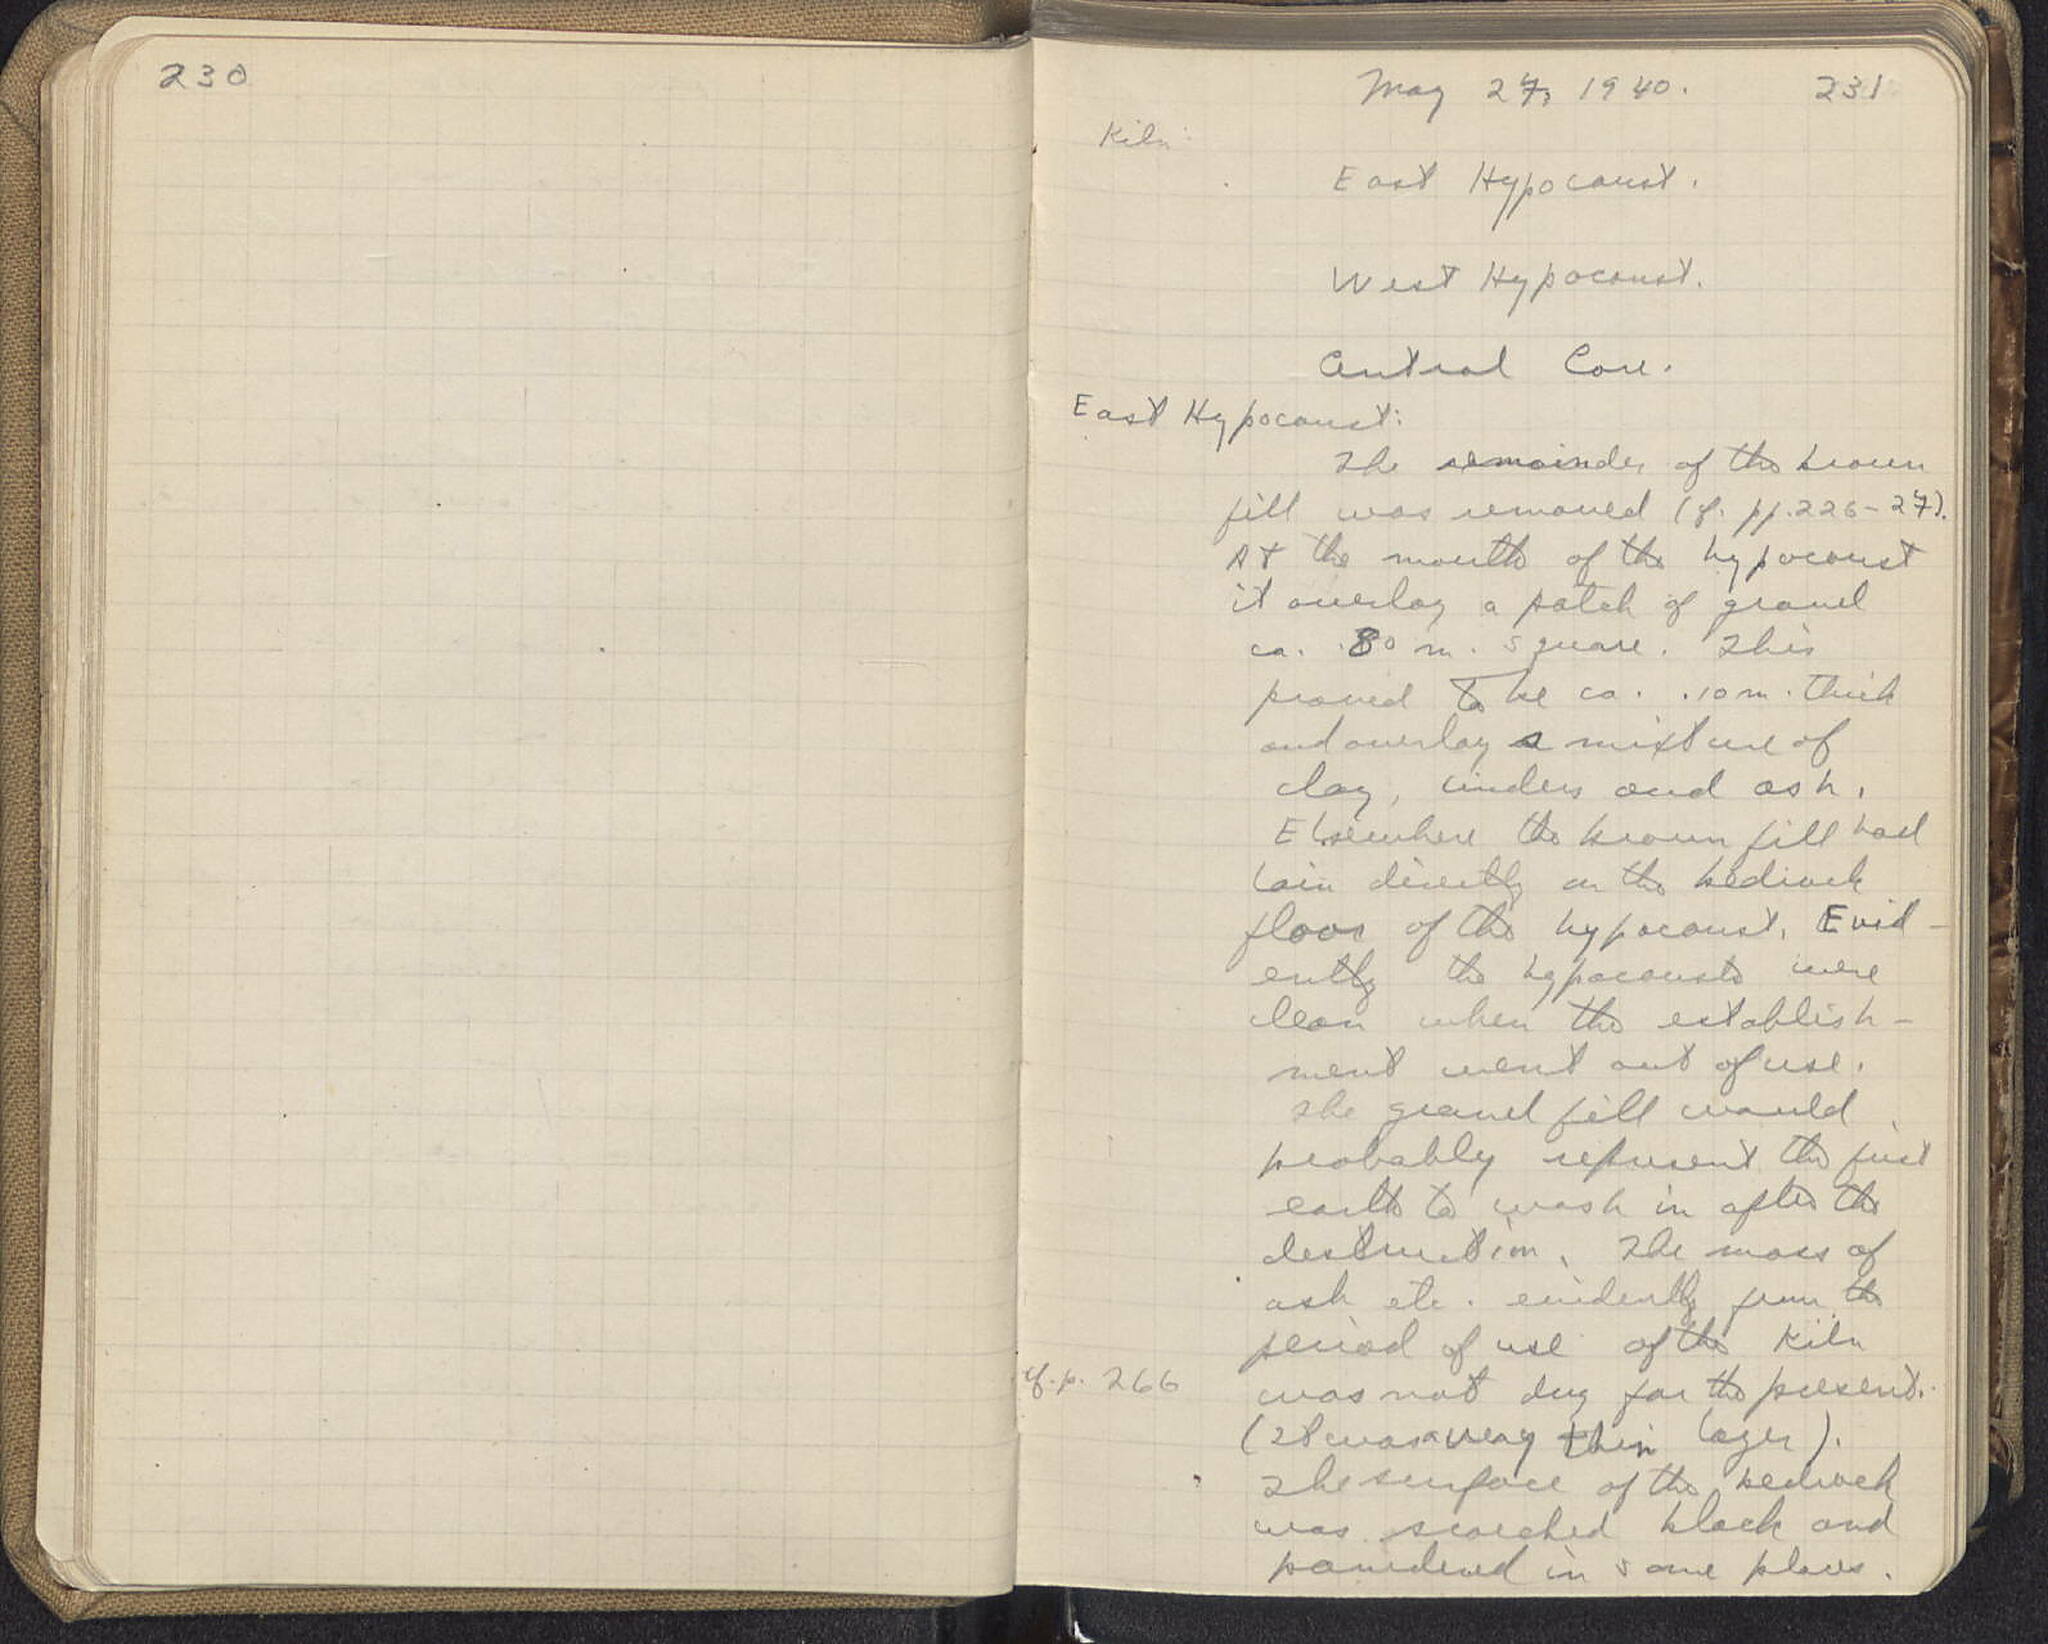 230
May 27, 1940. 231
Kiln:
East Hypocaust.
West Hypocaust.
Central Core.
East Hypocaust:
The remainder of the brown
fill was removed (cf. pp. 226-27).
At the mouth of the hypocaust
it overlay a patch of gravel
ca. .80 m. square. This
proved to be ca. .10 m. thick
and overlay a mixture of
clay, cinders and ash.
Elsewhere the brown fill had
lain directly on the bedrock
floor of the hypocaust. Evid-
ently the hypocausts were
clean when the establish-
ment went out of use.
The gravel fill would
probably represent the first
earth to wash in after the
destruction. The mass of
ash etc. evidently from the
period of use of the kiln
cf. p. 266 was not dug for the present.
(It was a very thin layer).
The surface of the bedrock
was scorched black and
powdered in some places.